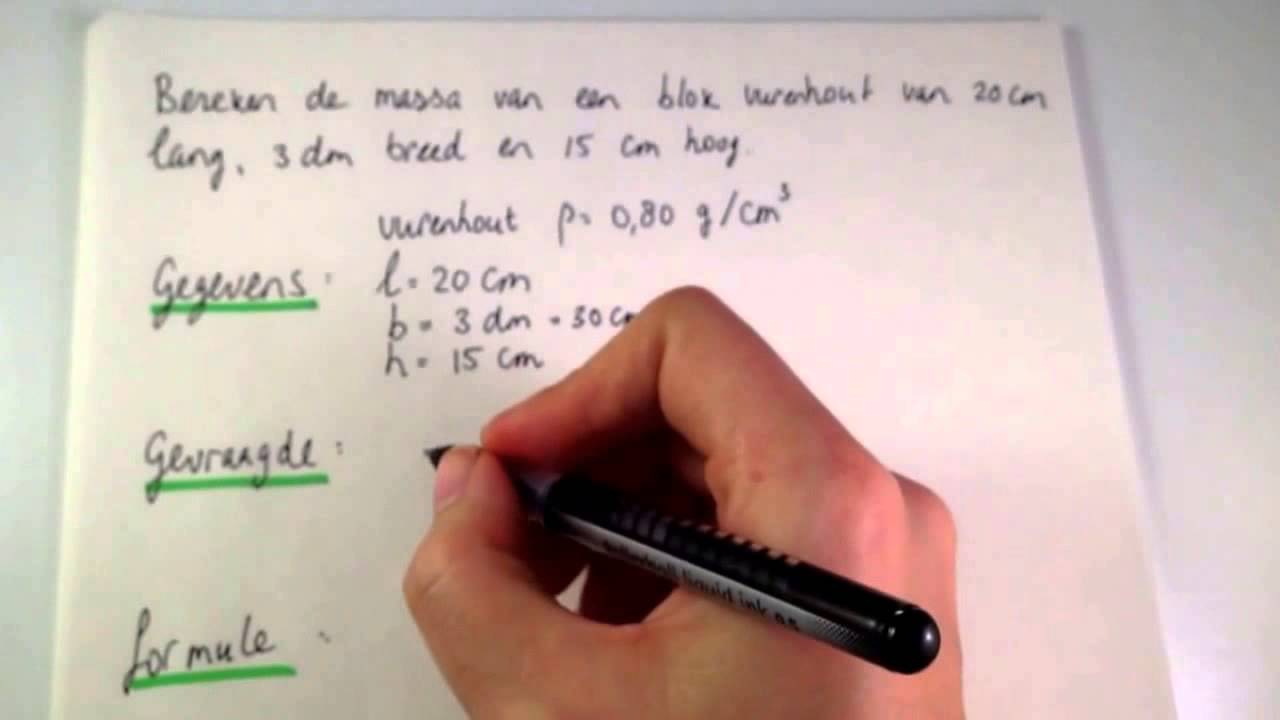 Bereken de massa van een blok vurenhout van 20 cm
lang, 3 dm breed en 15 cm hoog.
vurenhout ρ = 0,80 g/cm³
Gegevens: l = 20 cm
b = 3 dm = 30 cm
h = 15 cm
Gevraagde:
formule :
liquid ink